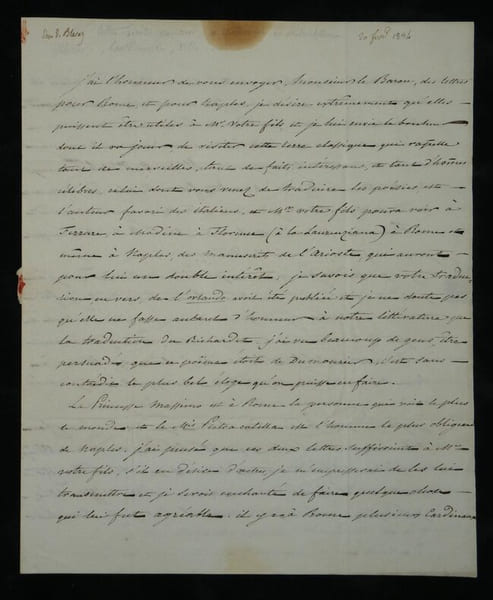 20 fév. 1824
j'ai l'honneur de vous envoyer, monsieur le Baron, des lettres
pour Rome, et pour Naples, je désire extremement qu'elles
puissent être utiles à Mr. votre fils, et je lui envie le bonheur
dont il va jouir de visiter cette terre classique qui rapelle
tant de merveilles, tant de faits intéressans, et tant d'hommes
célebres, celui dont vous venez de traduire les poésies est
l'auteur favori des italiens, et Mr. votre fils pourra voir à
Ferrare, à Modène à Florence (à la Laurenziana) à Rome et
même à Naples, des manuscrits de l'arioste qui auront
pour lui un double intérêt, je savois que votre traduc-
tion en vers, de l'orlando avoit été publiée et je ne doute pas
qu'elle ne fasse autant d'honneur à notre littérature que
la traduction du Richardet j'ai vu beaucoup de gens être
persuadés que ce poëme étoit de Dumourier, c'est sans
contredit le plus bel éloge qu'on puisse en faire.
La Princesse Massimo est à Rome la personne qui voit le plus
le monde, et le Mis Pietracatella est l'homme le plus obligeant
de Naples, j'ai pensé que ces deux lettres suffiroient à Mr.
votre fils, s'il en désire d'autres, je m'empresserai de les lui
transmettre et je serois enchanté de faire quelque chose
qui lui fut agréable. il y a à Rome plusieurs Cardinaux